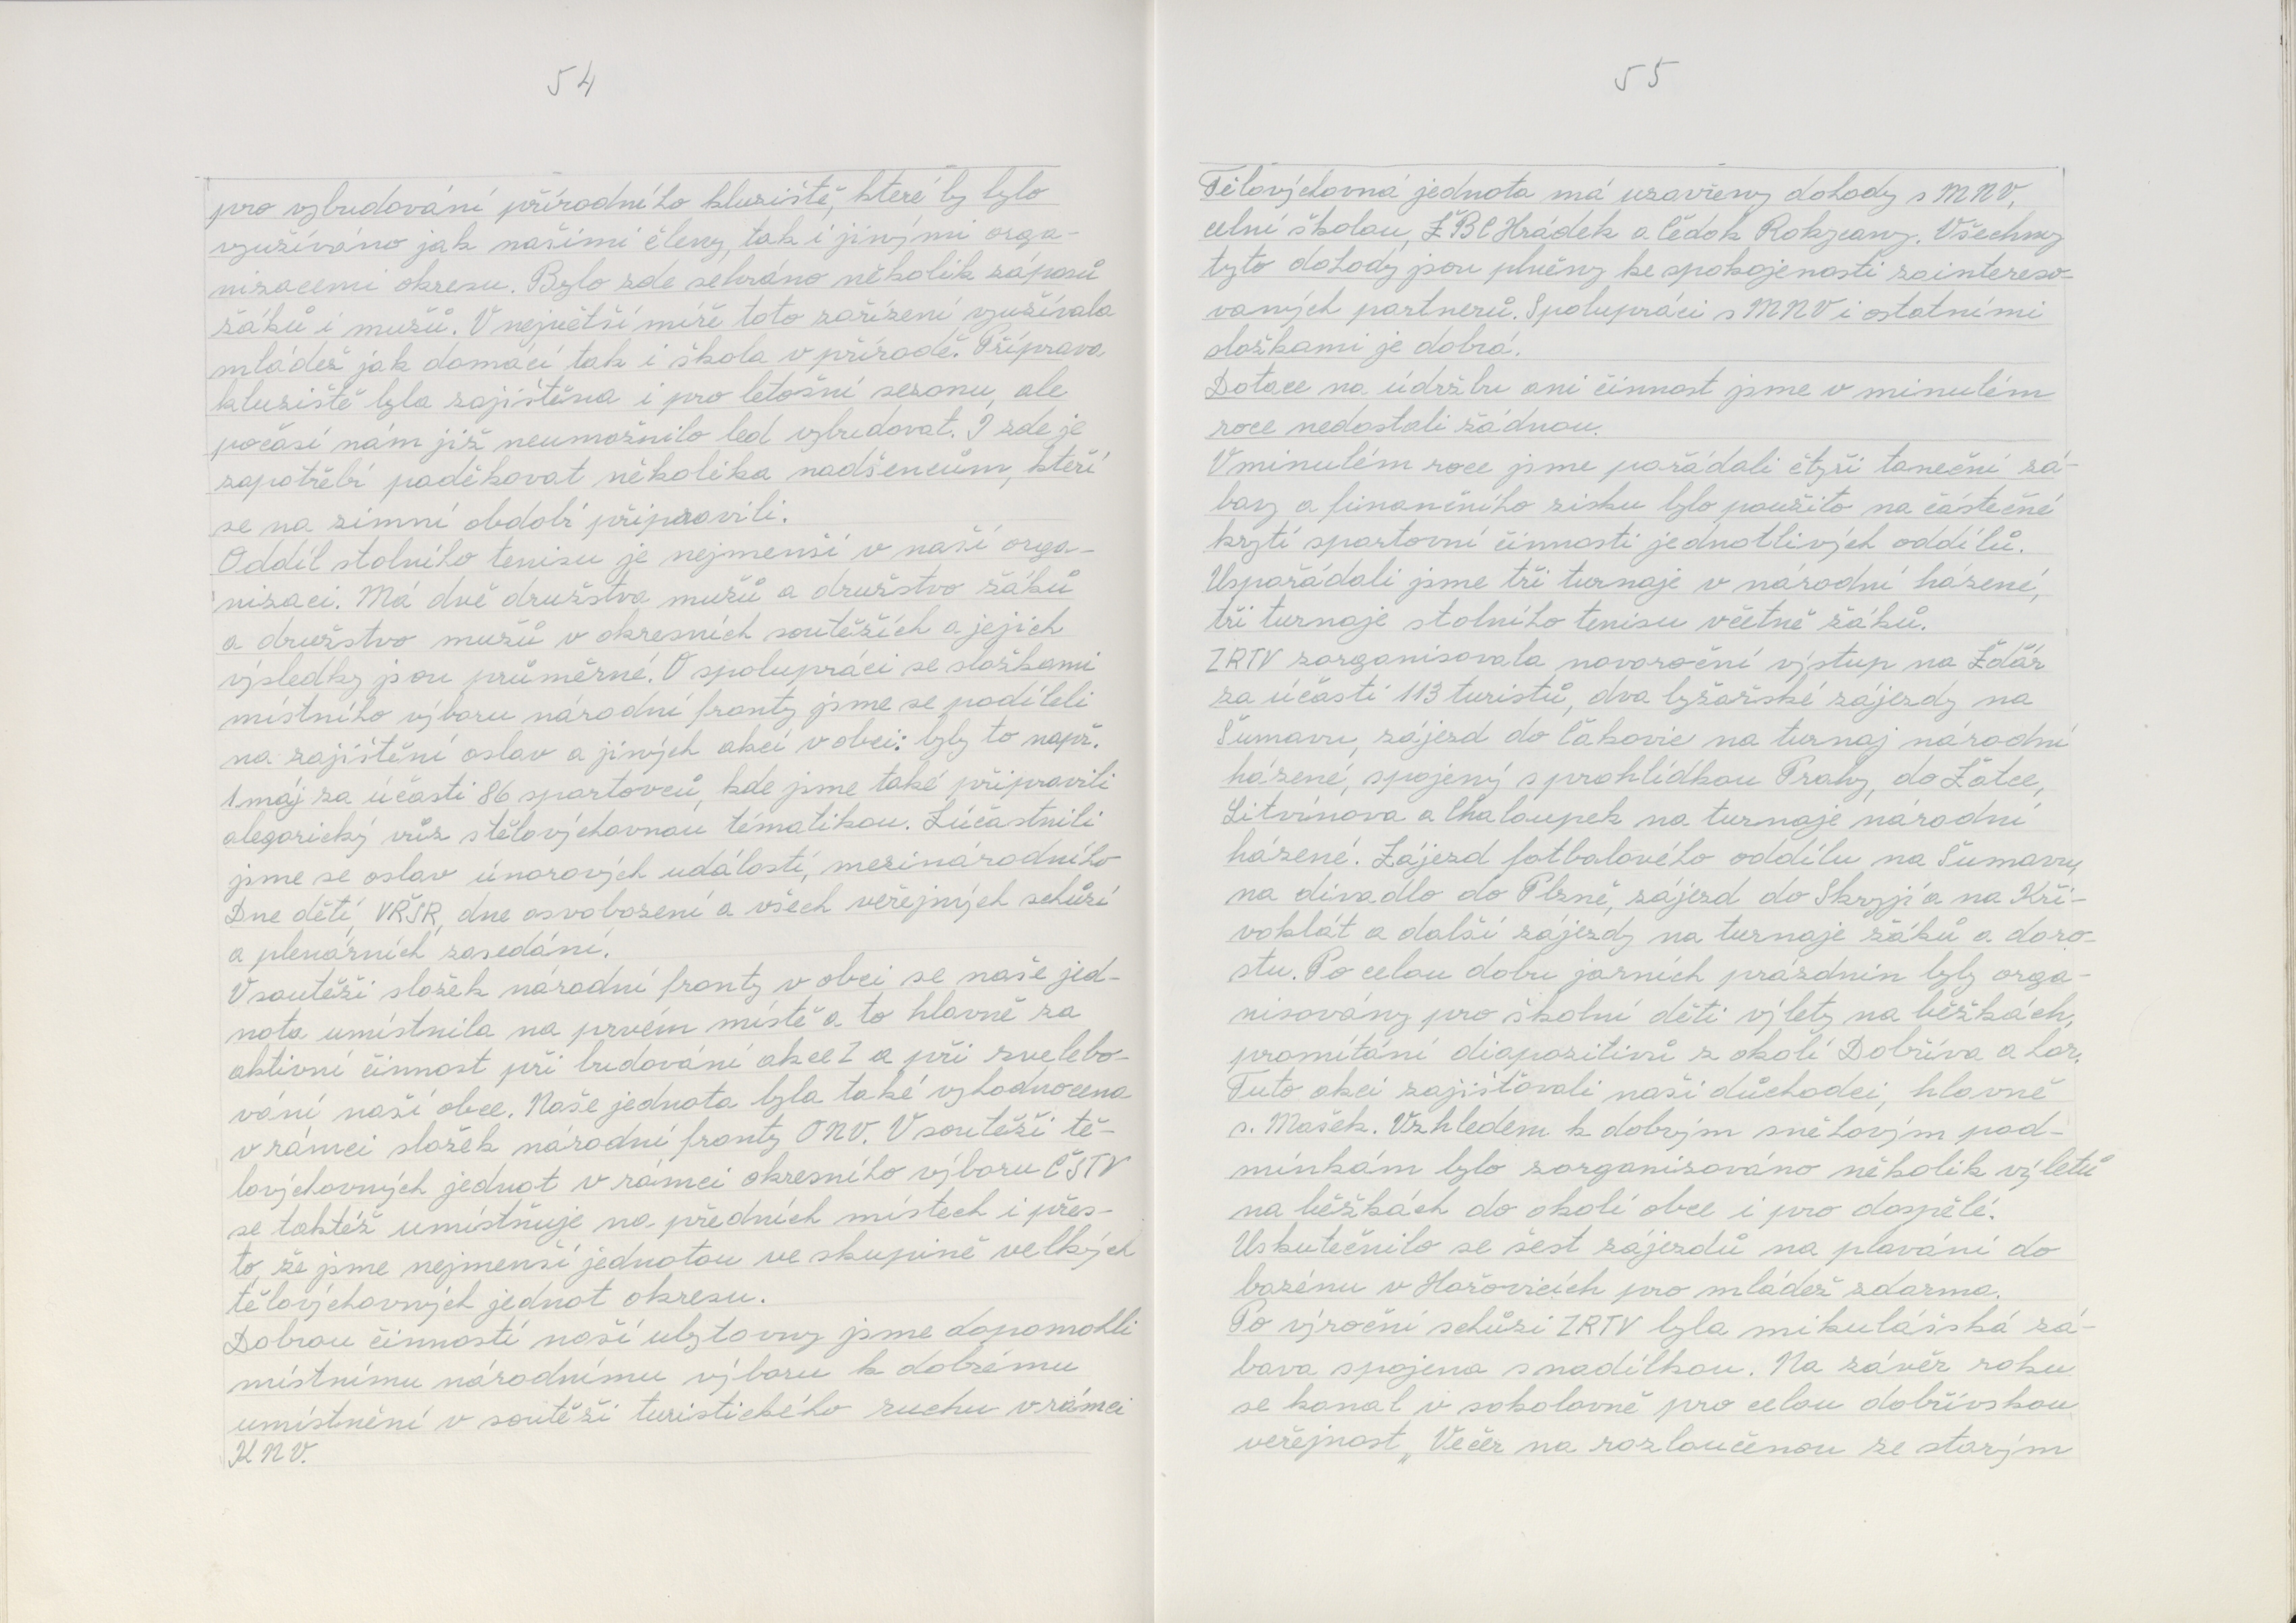 54
pro vybudování přírodního kluziště, které by bylo
využíváno jak našimi členy, tak i jinými orga-
nizacemi okresu. Bylo zde sehráno několik zápasů
žáků i mužů. V největší míře toto zařízení využívala
mládež jak domácí tak i škola v přírodě. Příprava
kluziště byla zajištěna i pro letošní sezonu, ale
počasí nám již neumožnilo led vybudovat. I zde je
zapotřebí poděkovat několika nadšencům, kteří
se na zimní období připravili.
Oddíl stolního tenisu je nejmenší v naší orga-
nizaci. Má dvě družstva mužů a družstvo žáků
a družstvo mužů v okresních soutěžích a jejich
výsledky jsou průměrné. O spolupráci se složkami
místního výboru národní fronty jsme se podíleli
na zajištění oslav a jiných akcí v obci: byly to např.
1 máj za účasti 86 sportovců, kde jsme také připravili
alegorický vůz s tělovýchovnou tématikou. Zúčastnili
jsme se oslav únorových událostí, mezinárodního
Dne dětí, VŘSR, dne osvobození a všech veřejných schůzí
a plenárních zasedání.
V soutěži složek národní fronty v obci se naše jed-
nota umístnila na prvém místě a to hlavně za
aktivní činnost při budování akce Z a při zvelebo-
vání naší obce. Naše jednota byla také vyhodnocena
v rámci složek národní fronty ONV. V soutěži tě-
lovýchovných jednot v rámci okresního výboru ČSTV
se taktéž umístňuje na předních místech i přes-
to, že jsme nejmenší jednotou ve skupině velkých
tělovýchovných jednot okresu.
Dobrou činností naší ubytovny jsme dopomohli
místnímu národnímu výboru k dobrému
umístnění v soutěži turistického ruchu v rámci
KNV.
55
Tělovýchovná jednota má uzavřeny dohody s MNV,
celní školou, ŽBC Hrádek a Čedok Rokycany. Všechny
tyto dohody jsou plněny ke spokojenosti zaintereso-
vaných partnerů. Spolupráci s MNV i ostatními
složkami je dobrá.
Dotace na údržbu ani činnost jsme v minulém
roce nedostali žádnou.
V minulém roce jsme pořádali čtyři taneční zá-
bavy a finančního zisku bylo použito na částečné
krytí sportovní činnosti jednotlivých oddílů.
Uspořádali jsme tři turnaje v národní házené,
tři turnaje stolního tenisu včetně žáků.
ZRTV zorganisovala novoroční výstup na Žďár
za účasti 113 turistů, dva lyžařské zájezdy na
Šumavu, zájezd do Čakovic na turnaj národní
házené, spojený s prohlídkou Prahy, do Žatce,
Litvínova a Chaloupek na turnaje národní
házené. Zájezd fotbalového oddílu na Šumavu,
na divadlo do Plzně, zájezd do Skryjí a na Kři-
voklát a další zájezdy na turnaje žáků a doro-
stu. Po celou dobu jarních prázdnin byly orga-
nisovány pro školní děti výlety na běžkách,
promítání diapozitivů z okolí Dobříva a hor.
Tuto akci zajišťovali naši důchodci, hlavně
s. Mašek. Vzhledem k dobrým sněhovým pod-
mínkám bylo zorganizováno několik výletů
na běžkách do okolí obce i pro dospělé.
Uskutečnilo se šest zájezdů na plavání do
bazénu v Hořovicích pro mládež zdarma.
Po výroční schůzi ZRTV byla mikulášská zá-
bava spojena s nadílkou. Na závěr roku
se konal v sokolovně pro celou dobřívskou
veřejnost „Večer na rozloučenou se starým